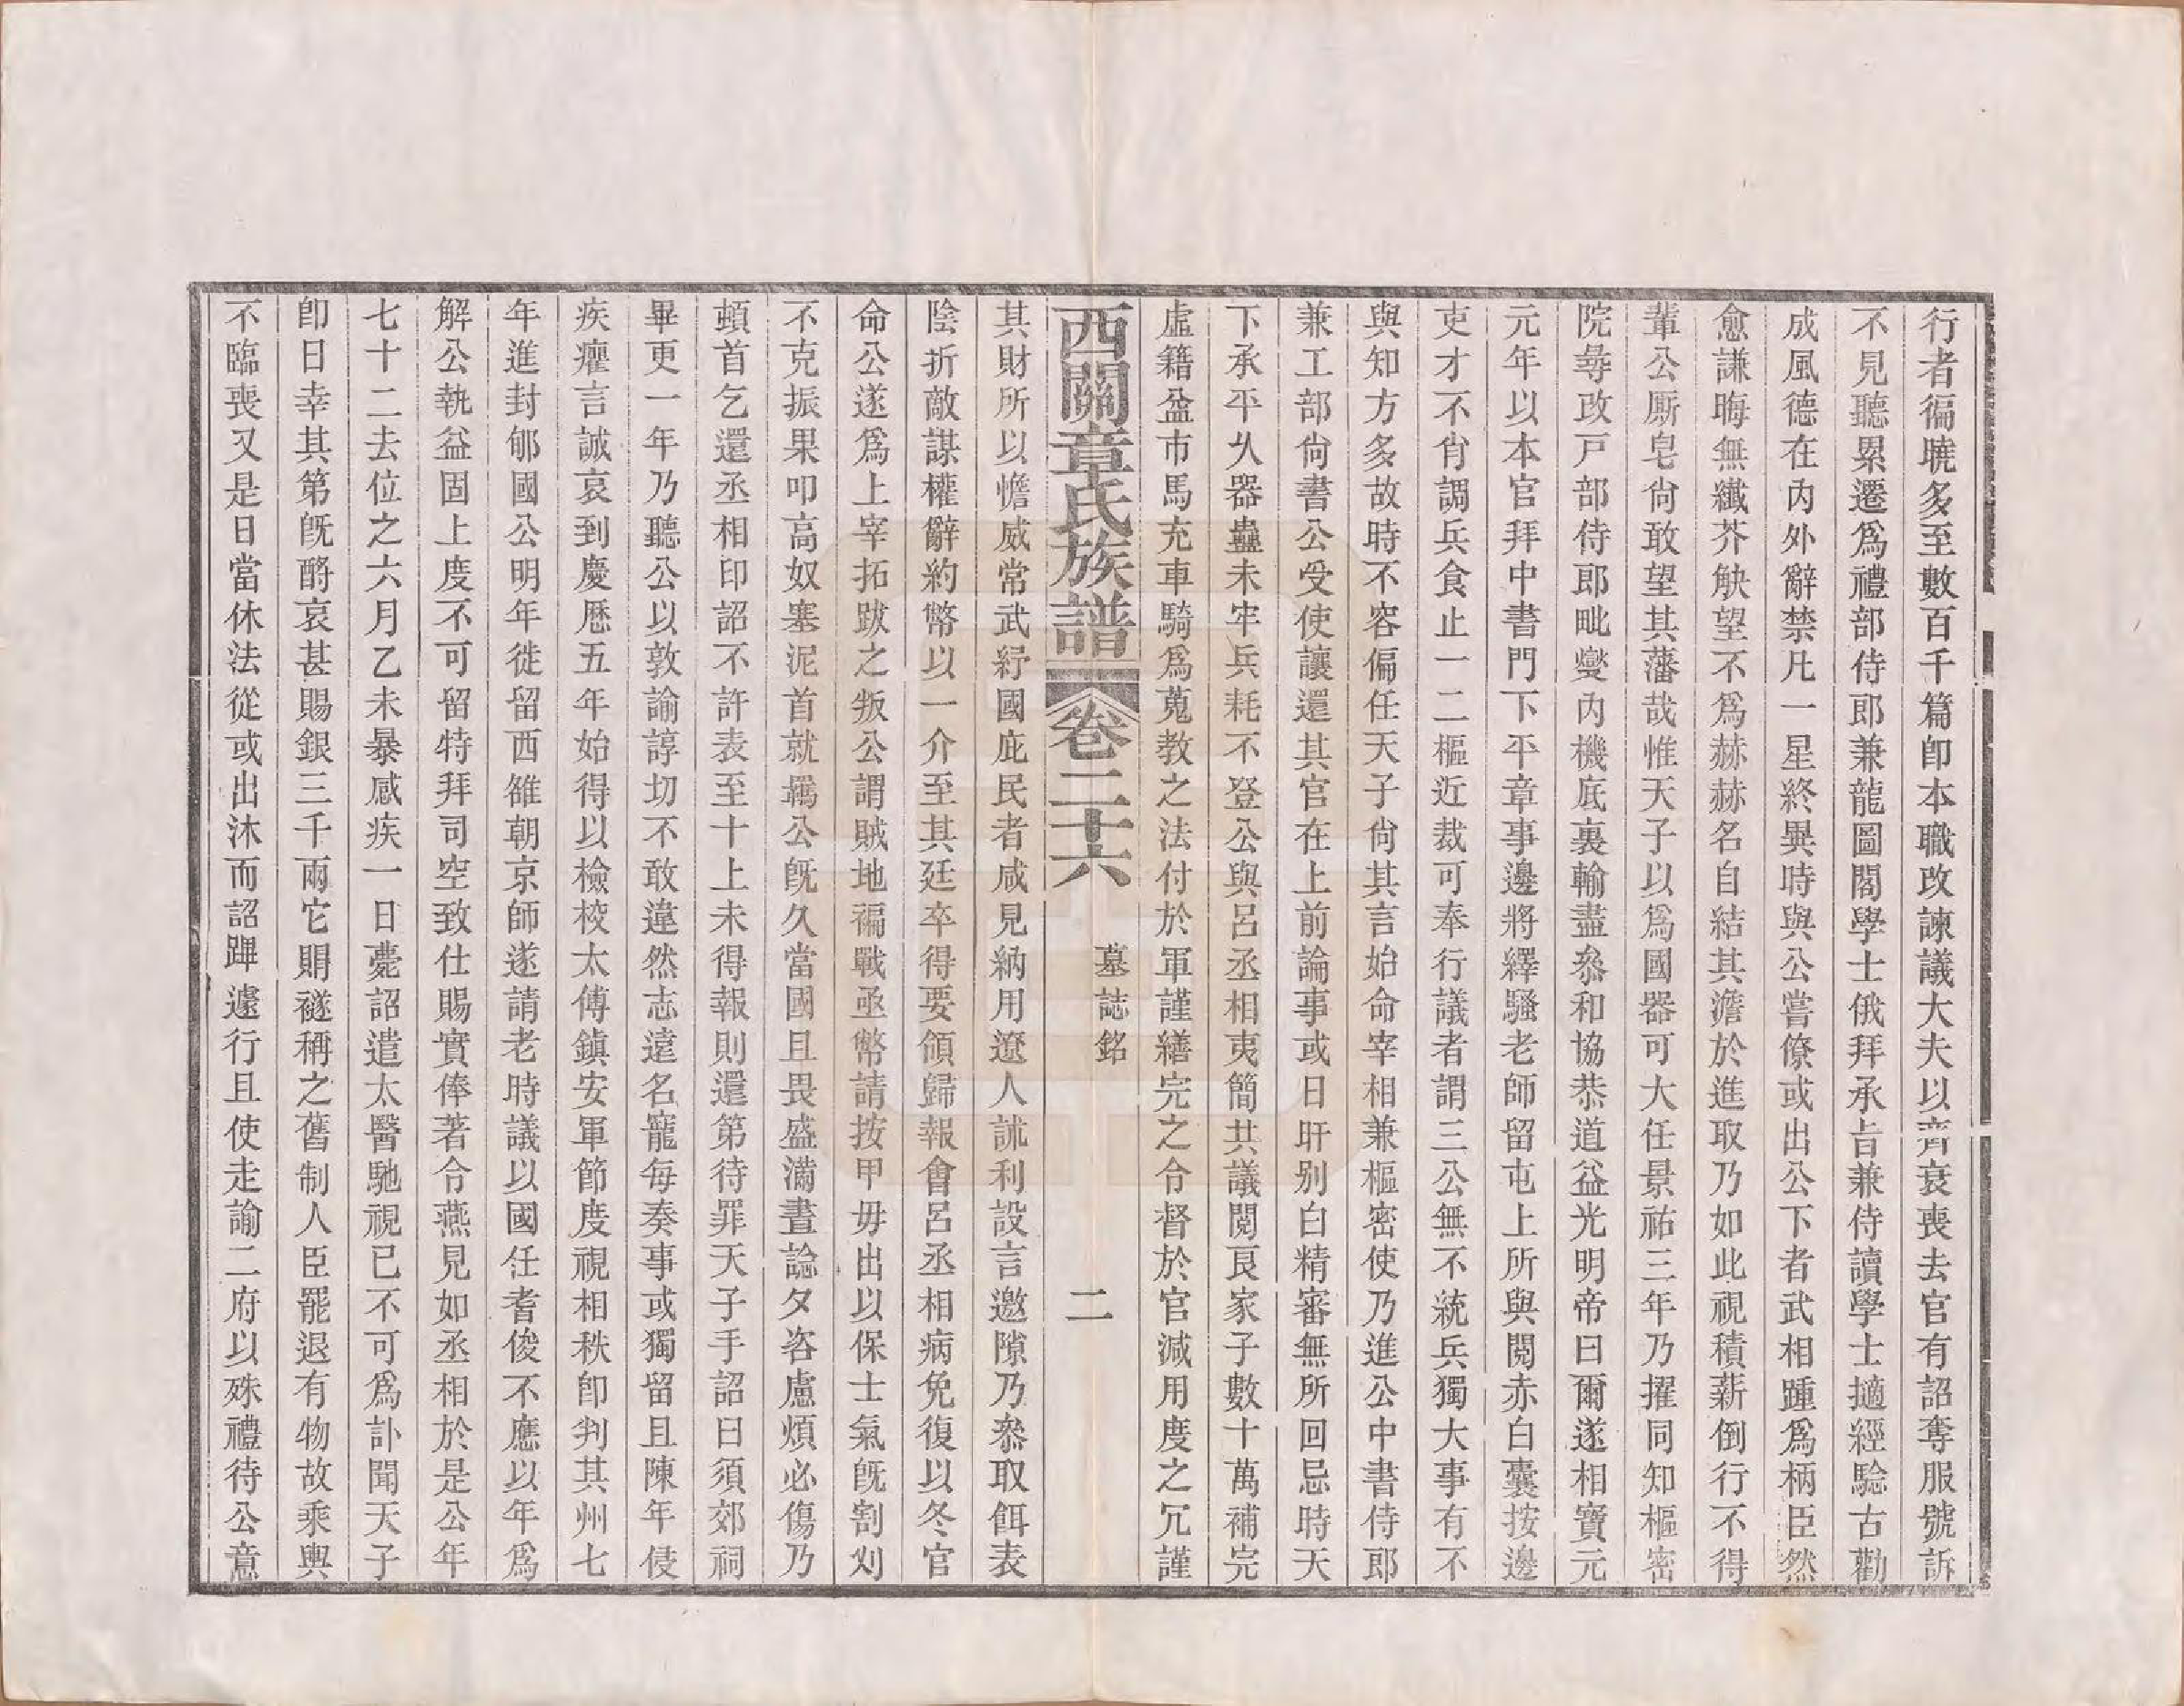 行者徧曉多至數百千篇卽本職改諫議大夫以齊衰喪去官有詔奪服號訴
不見聽累遷爲禮部侍郎兼龍圖閣學士俄拜承旨兼侍讀學士擿經驗古勸
成風德在內外辭禁凡一星終異時與公嘗僚或出公下者武相踵爲柄臣然
愈謙晦無纖芥觖望不爲赫赫名自結其澹於進取乃如此視積薪倒行不得
輩公厮皂尙敢望其藩哉惟天子以爲國器可大任景祐三年乃擢同知樞密
院尋改戸部侍郎毗燮內機底裏輸盡叅和協恭道益光明帝曰爾遂相寶元
元年以本官拜中書門下平章事邊將繹騷老師留屯上所與閱赤白囊按邊
吏才不肖調兵食止一二樞近裁可奉行議者謂三公無不統兵獨大事有不
與知方多故時不容偏任天子尙其言始命宰相兼樞密使乃進公中書侍郎
兼工部尙書公受使讓還其官在上前論事或日旰别白精審無所回忌時天
下承平乆器蠱未牢兵耗不登公與呂丞相夷簡共議閱良家子數十萬補完
虛籍盈市馬充車騎爲蒐教之法付於軍謹繕完之令督於官減用度之冗謹
西關章氏族譜 卷二十六 墓誌銘 二
其財所以憺威常武紓國庇民者咸見納用遼人訹利設言邀隙乃叅取餌表
陰折敵謀權辭約幣以一介至其廷卒得要領歸報會呂丞相病免復以冬官
命公遂爲上宰拓跋之叛公謂賊地褊戰亟幣請按甲毋出以保士氣旣割刈
不克振果叩高奴塞泥首就羈公旣久當國且畏盛滿晝諗夕咨慮煩必傷乃
頓首乞還丞相印詔不許表至十上未得報則還第待罪天子手詔曰須郊祠
畢更一年乃聽公以敦諭諄切不敢違然志遠名寵每奏事或獨留且陳年侵
疾癯言誠哀到慶厯五年始得以檢校太傅鎭安軍節度視相秩卽判其州七
年進封郇國公明年徙留西雒朝京師遂請老時議以國任耆俊不應以年爲
解公執益固上度不可留特拜司空致仕賜實俸著令燕見如丞相於是公年
七十二去位之六月乙未暴感疾一日薨詔遣太醫馳視已不可爲訃聞天子
卽日幸其第旣酹哀甚賜銀三千兩它賵襚稱之舊制人臣罷退有物故乘輿
不臨喪又是日當休法從或出沐而詔趣遽行且使走諭二府以殊禮待公意